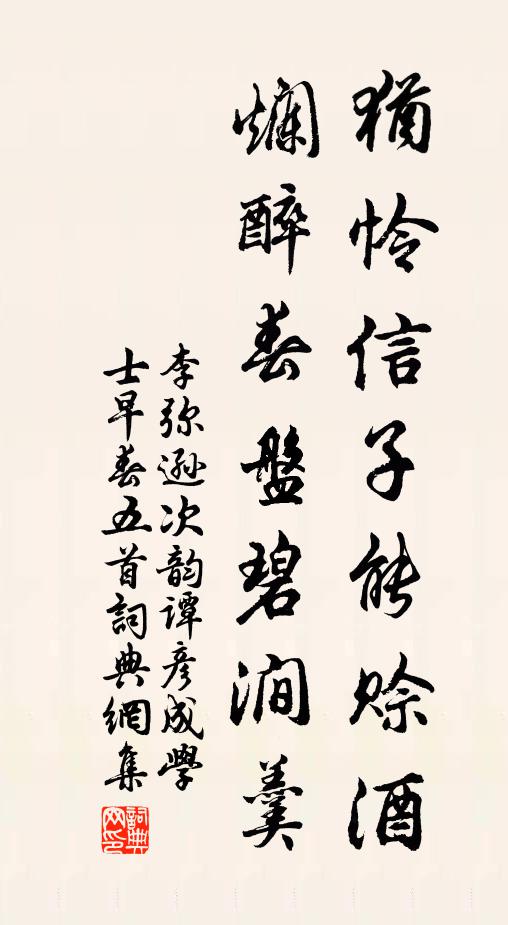 猶怜信子能賒酒
爛醉春盤碧澗羹
李弥遜次韵譚彦成學
士早春五首詞典網集
詞典
网印